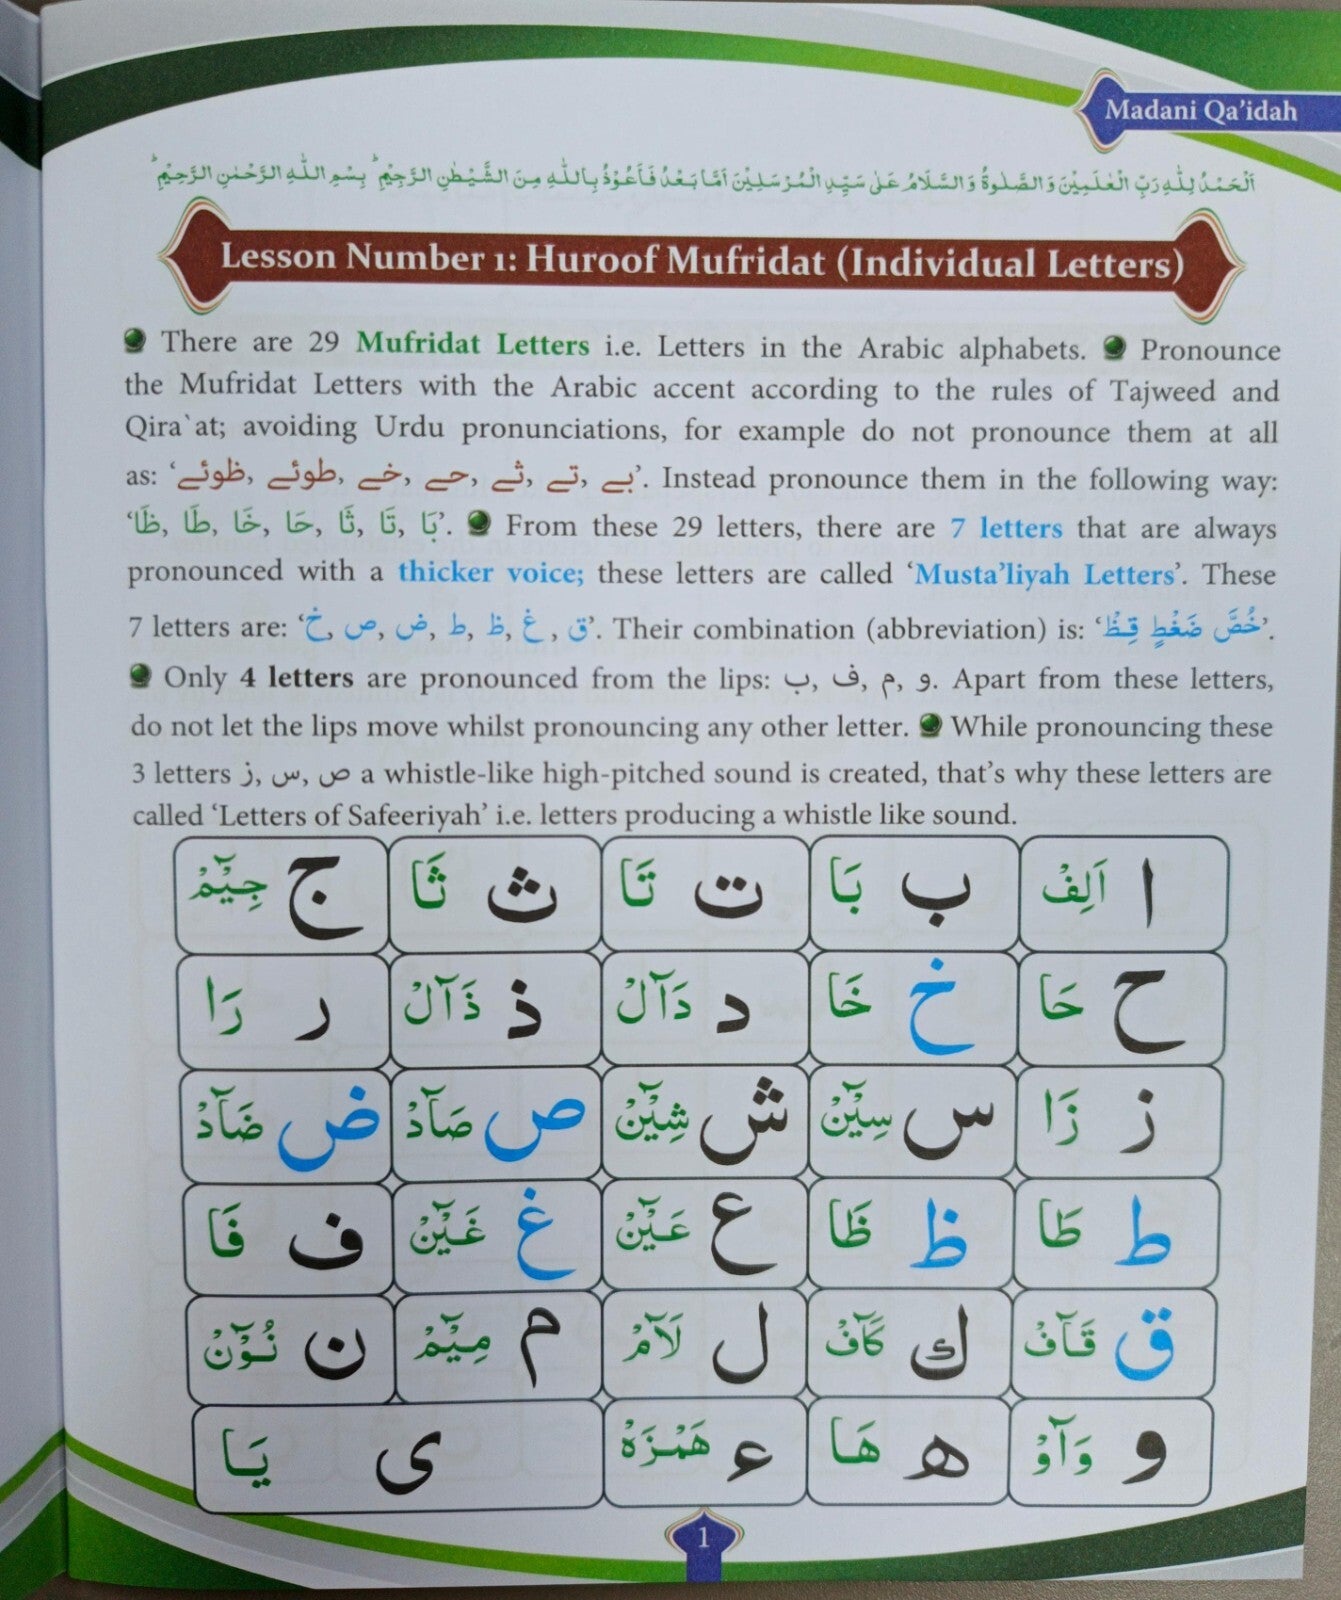 Madani Qa'idah
اَلْحَمْدُ لِلّٰهِ رَبِّ الْعٰلَمِيْنَ وَالصَّلٰوةُ وَالسَّلَامُ عَلٰى سَيِّدِ الْمُرْسَلِيْنَ اَمَّا بَعْدُ فَاَعُوْذُ بِاللّٰهِ مِنَ الشَّيْطٰنِ الرَّجِيْمِ ؕ بِسْمِ اللّٰهِ الرَّحْمٰنِ الرَّحِيْمِ ؕ
Lesson Number 1: Huroof Mufridat (Individual Letters)
There are 29 Mufridat Letters i.e. Letters in the Arabic alphabets. Pronounce
the Mufridat Letters with the Arabic accent according to the rules of Tajweed and
Qira`at; avoiding Urdu pronunciations, for example do not pronounce them at all
as: ‘بے, تے, ثے, حے, خے, طوئے, ظوئے’. Instead pronounce them in the following way:
‘بَا, تَا, ثَا, حَا, خَا, طَا, ظَا’. From these 29 letters, there are 7 letters that are always
pronounced with a thicker voice; these letters are called ‘Musta’liyah Letters’. These
7 letters are: ‘خ, ص, ض, ط, ظ, غ, ق’. Their combination (abbreviation) is: ‘خُصَّ ضَغْطٍ قِظْ’.
Only 4 letters are pronounced from the lips: ب, ف, م, و. Apart from these letters,
do not let the lips move whilst pronouncing any other letter. While pronouncing these
3 letters ز, س, ص a whistle-like high-pitched sound is created, that’s why these letters are
called ‘Letters of Safeeriyah’ i.e. letters producing a whistle like sound.
ا اَلِفْ ب بَا ت تَا ث ثَا ج جِيْٓمْ
ح حَا خ خَا د دَآلْ ذ ذَآلْ ر رَا
ز زَا س سِيْٓنْ ش شِيْٓنْ ص صَآدْ ض ضَآدْ
ط طَا ظ ظَا ع عَيْٓنْ غ غَيْٓنْ ف فَا
ق قَآفْ ك كَآفْ ل لَآمْ م مِيْٓمْ ن نُوْٓنْ
و وَآوْ ه هَا ء هَمْزَهْ ى يَا
1